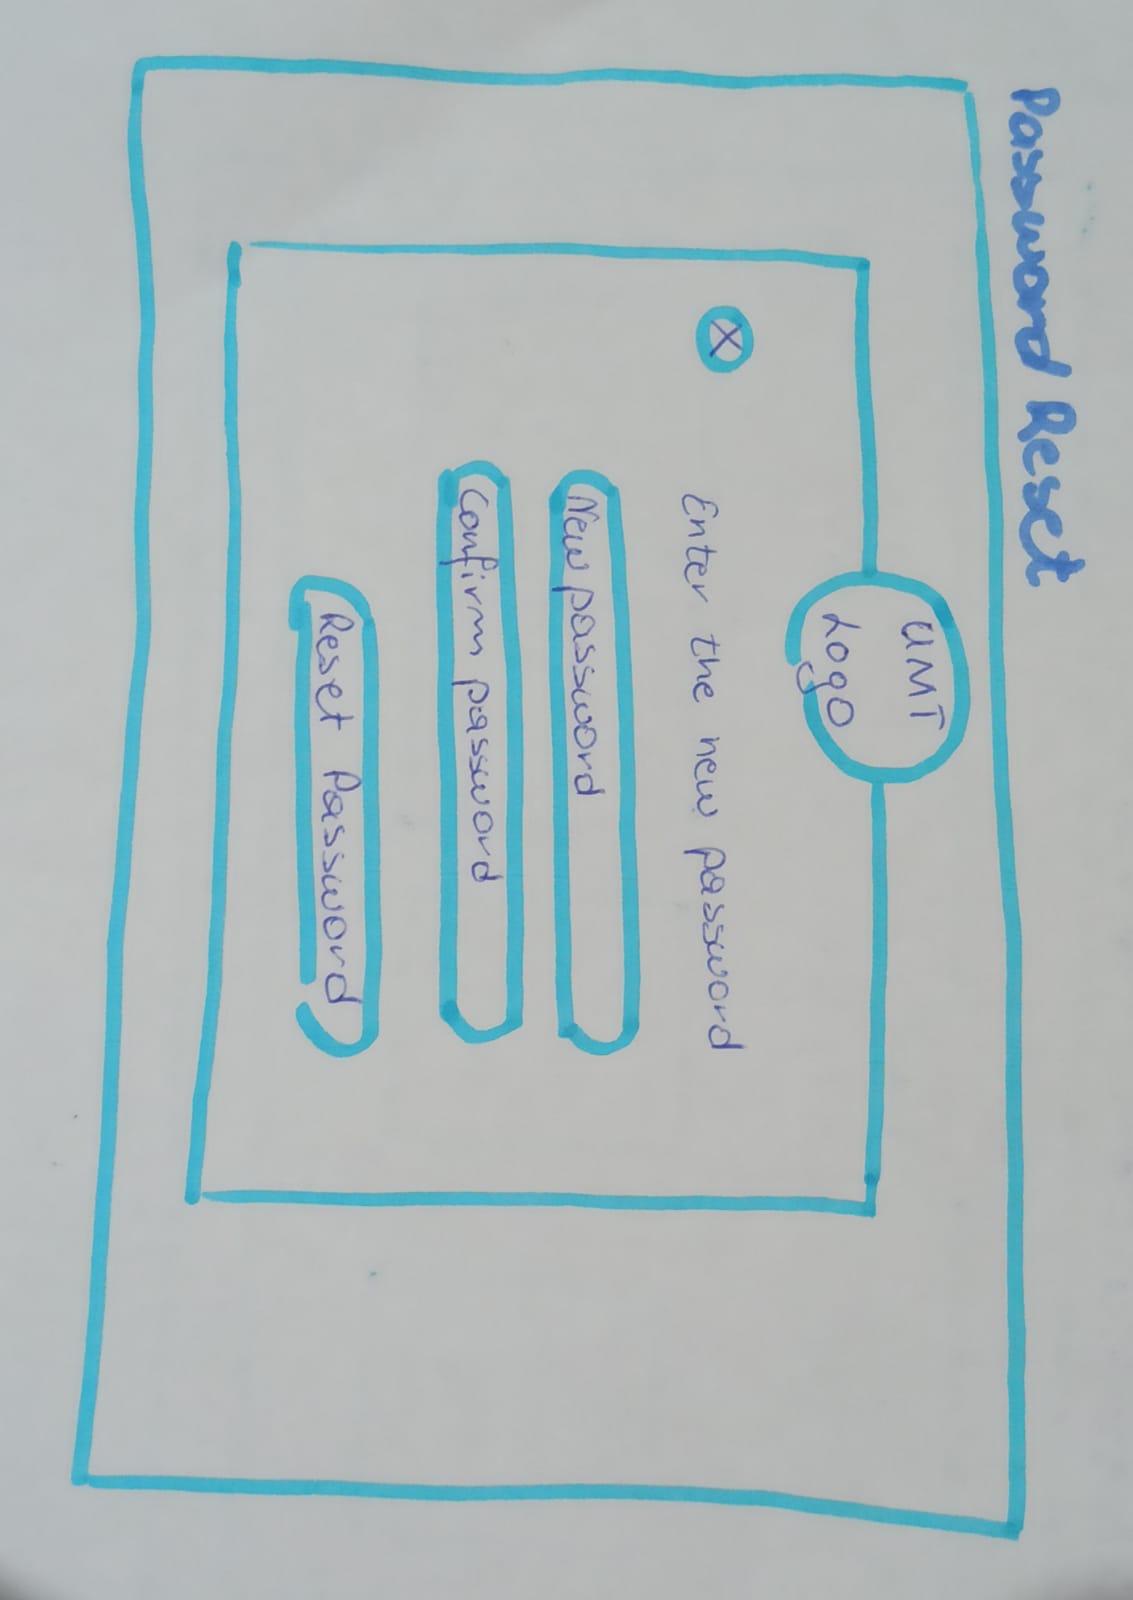 Password Reset
UMT
Logo
X
Enter the new password
New password
Confirm password
Reset Password